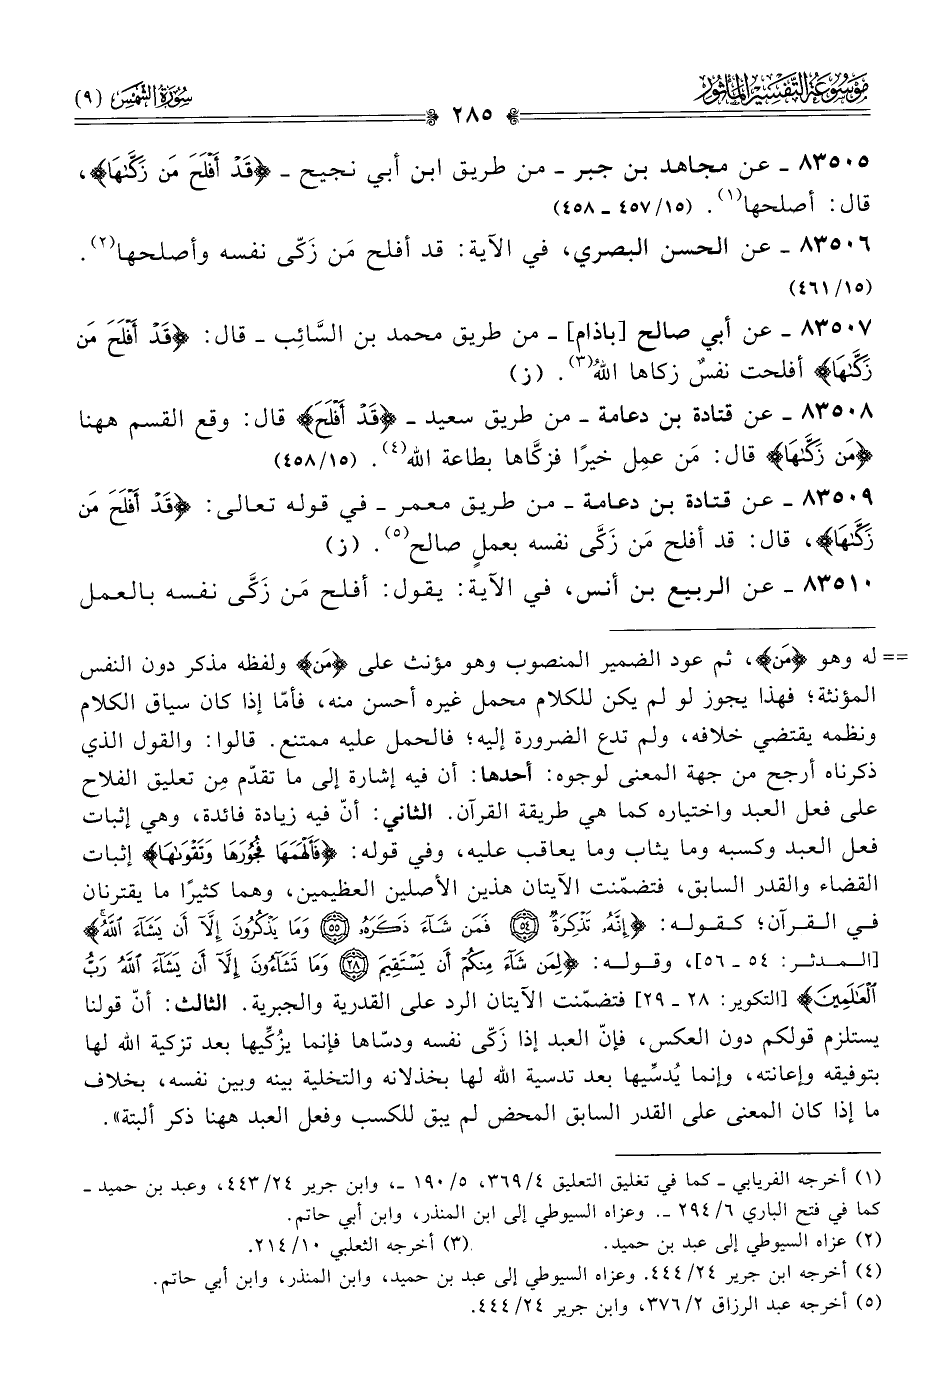 موسوعة التفسير المأثور
سورة الشمس (٩)
٢٨٥
٨٣٥٠٥ ـ عن مجاهد بن جبر ـ من طريق ابن أبي نجيح ـ ﴿قَدْ أَفْلَحَ مَن زَكَّىٰهَا﴾،
قال: أصلحها(١). (١٥/ ٤٥٧ ـ ٤٥٨)
٨٣٥٠٦ ـ عن الحسن البصري، في الآية: قد أفلح مَن زَكّى نفسه وأصلحها(٢).
(١٥/ ٤٦١)
٨٣٥٠٧ ـ عن أبي صالح [باذام] ـ من طريق محمد بن السَّائِب ـ قال: ﴿قَدْ أَفْلَحَ مَن
زَكَّىٰهَا﴾ أفلحت نفسٌ زكاها اللهُ(٣). (ز)
٨٣٥٠٨ ـ عن قتادة بن دعامة ـ من طريق سعيد ـ ﴿قَدْ أَفْلَحَ﴾ قال: وقع القسم ههنا
﴿مَن زَكَّىٰهَا﴾ قال: مَن عمِل خيرًا فزكَّاها بطاعة الله(٤). (١٥/ ٤٥٨)
٨٣٥٠٩ ـ عن قتادة بن دعامة ـ من طريق معمر ـ في قوله تعالى: ﴿قَدْ أَفْلَحَ مَن
زَكَّىٰهَا﴾، قال: قد أفلح مَن زَكَّى نفسه بعملٍ صالح(٥). (ز)
٨٣٥١٠ ـ عن الربيع بن أنس، في الآية: يقول: أفلح مَن زَكَّى نفسه بالعمل
== له وهو ﴿مَن﴾، ثم عود الضمير المنصوب وهو مؤنث على ﴿مَن﴾ ولفظه مذكر دون النفس
المؤنثة؛ فهذا يجوز لو لم يكن للكلام محمل غيره أحسن منه، فأمّا إذا كان سياق الكلام
ونظمه يقتضي خلافه، ولم تدع الضرورة إليه؛ فالحمل عليه ممتنع. قالوا: والقول الذي
ذكرناه أرجح من جهة المعنى لوجوه: أحدها: أن فيه إشارة إلى ما تقدّم مِن تعليق الفلاح
على فعل العبد واختياره كما هي طريقة القرآن. الثاني: أنّ فيه زيادة فائدة، وهي إثبات
فعل العبد وكسبه وما يثاب وما يعاقب عليه، وفي قوله: ﴿فَأَلْهَمَهَا فُجُورَهَا وَتَقْوَىٰهَا﴾ إثبات
القضاء والقدر السابق، فتضمّنت الآيتان هذين الأصلين العظيمين، وهما كثيرًا ما يقترنان
في القرآن؛ كقوله: ﴿إِنَّهُۥ تَذْكِرَةٌ ٥٤ فَمَن شَآءَ ذَكَرَهُۥ ٥٥ وَمَا يَذْكُرُونَ إِلَّآ أَن يَشَآءَ ٱللَّهُ﴾
[المدثر: ٥٤ ـ ٥٦]، وقوله: ﴿لِمَن شَآءَ مِنكُمْ أَن يَسْتَقِيمَ ٢٨ وَمَا تَشَآءُونَ إِلَّآ أَن يَشَآءَ ٱللَّهُ رَبُّ
ٱلْعَٰلَمِينَ﴾ [التكوير: ٢٨ ـ ٢٩] فتضمّنت الآيتان الرد على القدرية والجبرية. الثالث: أنّ قولنا
يستلزم قولكم دون العكس، فإنّ العبد إذا زَكّى نفسه ودسّاها فإنما يزُكِّيها بعد تزكية الله لها
بتوفيقه وإعانته، وإنما يُدسِّيها بعد تدسية الله لها بخذلانه والتخلية بينه وبين نفسه، بخلاف
ما إذا كان المعنى على القدر السابق المحض لم يبق للكسب وفعل العبد ههنا ذكر ألبتة».
(١) أخرجه الفريابي ـ كما في تغليق التعليق ٤/ ٣٦٩، ٥/ ١٩٠ ـ، وابن جرير ٢٤/ ٤٤٣، وعبد بن حميد ـ
كما في فتح الباري ٦/ ٢٩٤ ـ. وعزاه السيوطي إلى ابن المنذر، وابن أبي حاتم.
(٢) عزاه السيوطي إلى عبد بن حميد. (٣) أخرجه الثعلبي ١٠/ ٢١٤.
(٤) أخرجه ابن جرير ٢٤/ ٤٤٤. وعزاه السيوطي إلى عبد بن حميد، وابن المنذر، وابن أبي حاتم.
(٥) أخرجه عبد الرزاق ٢/ ٣٧٦، وابن جرير ٢٤/ ٤٤٤.